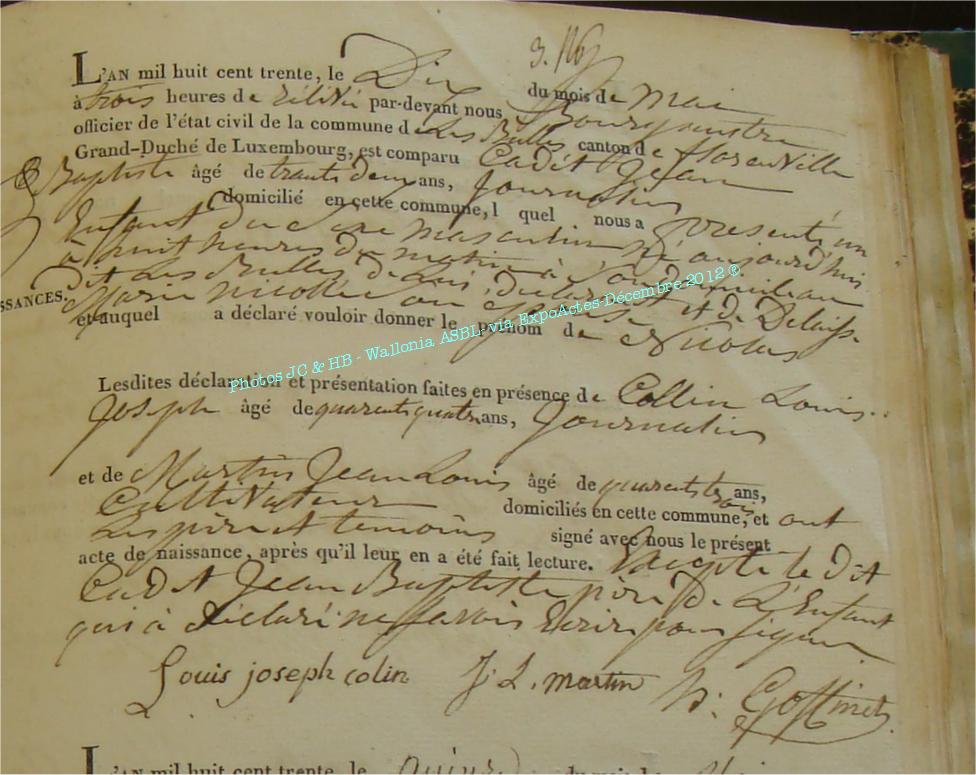 3. 116
L'AN mil huit cent trente, le Dix du mois de mai
à trois heures de relevée par-devant nous Bourgmestre
officier de l'état civil de la commune de Les Bulles canton de florenville
Grand-Duché de Luxembourg, est comparu Cadet Jean
Baptiste âgé de trante deux ans, Journalier
domicilié en cette commune, l quel nous a presenté un
Enfant du Sexe masculin né aujourd'hui
à huit heures du matin à Son domicil au
dit Les Bulles de Lui déclarant et de
SSANCES.
Marie nicolle Son Epouse
et auquel a déclaré vouloir donner le prénom de Nicolas
Lesdites déclaration et présentation faites en présence de Collin Louis
Joseph âgé de quarente quatre ans, Journalier
et de Martin Jean Louis âgé de quarente trois ans,
Cultivateur domiciliés en cette commune, et ont
Les père et temoins signé avec nous le présent
acte de naissance, après qu'il leur en a été fait lecture. Excepté le dit
Cadet Jean Baptiste père de L'Enfant
qui à déclaré ne savoir Ecrire pour signer
Louis joseph colin J. L. martin h. Goffinet
Photos JC & HB - Wallonia ASBL via ExpoActes-Décembre 2012 ©
L'AN mil huit cent trente, le quinze du mois de